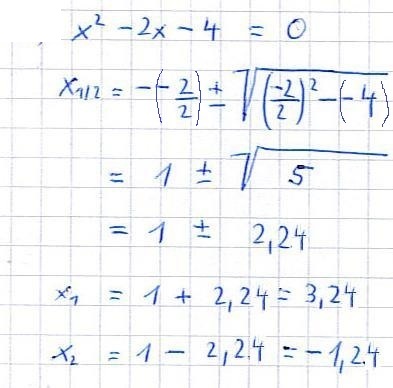 x² − 2x − 4 = 0
x₁/₂ = −(−2/2) ± √((−2/2)² − (−4))
= 1 ± √5
= 1 ± 2,24
x₁ = 1 + 2,24 = 3,24
x₂ = 1 − 2,24 = −1,24